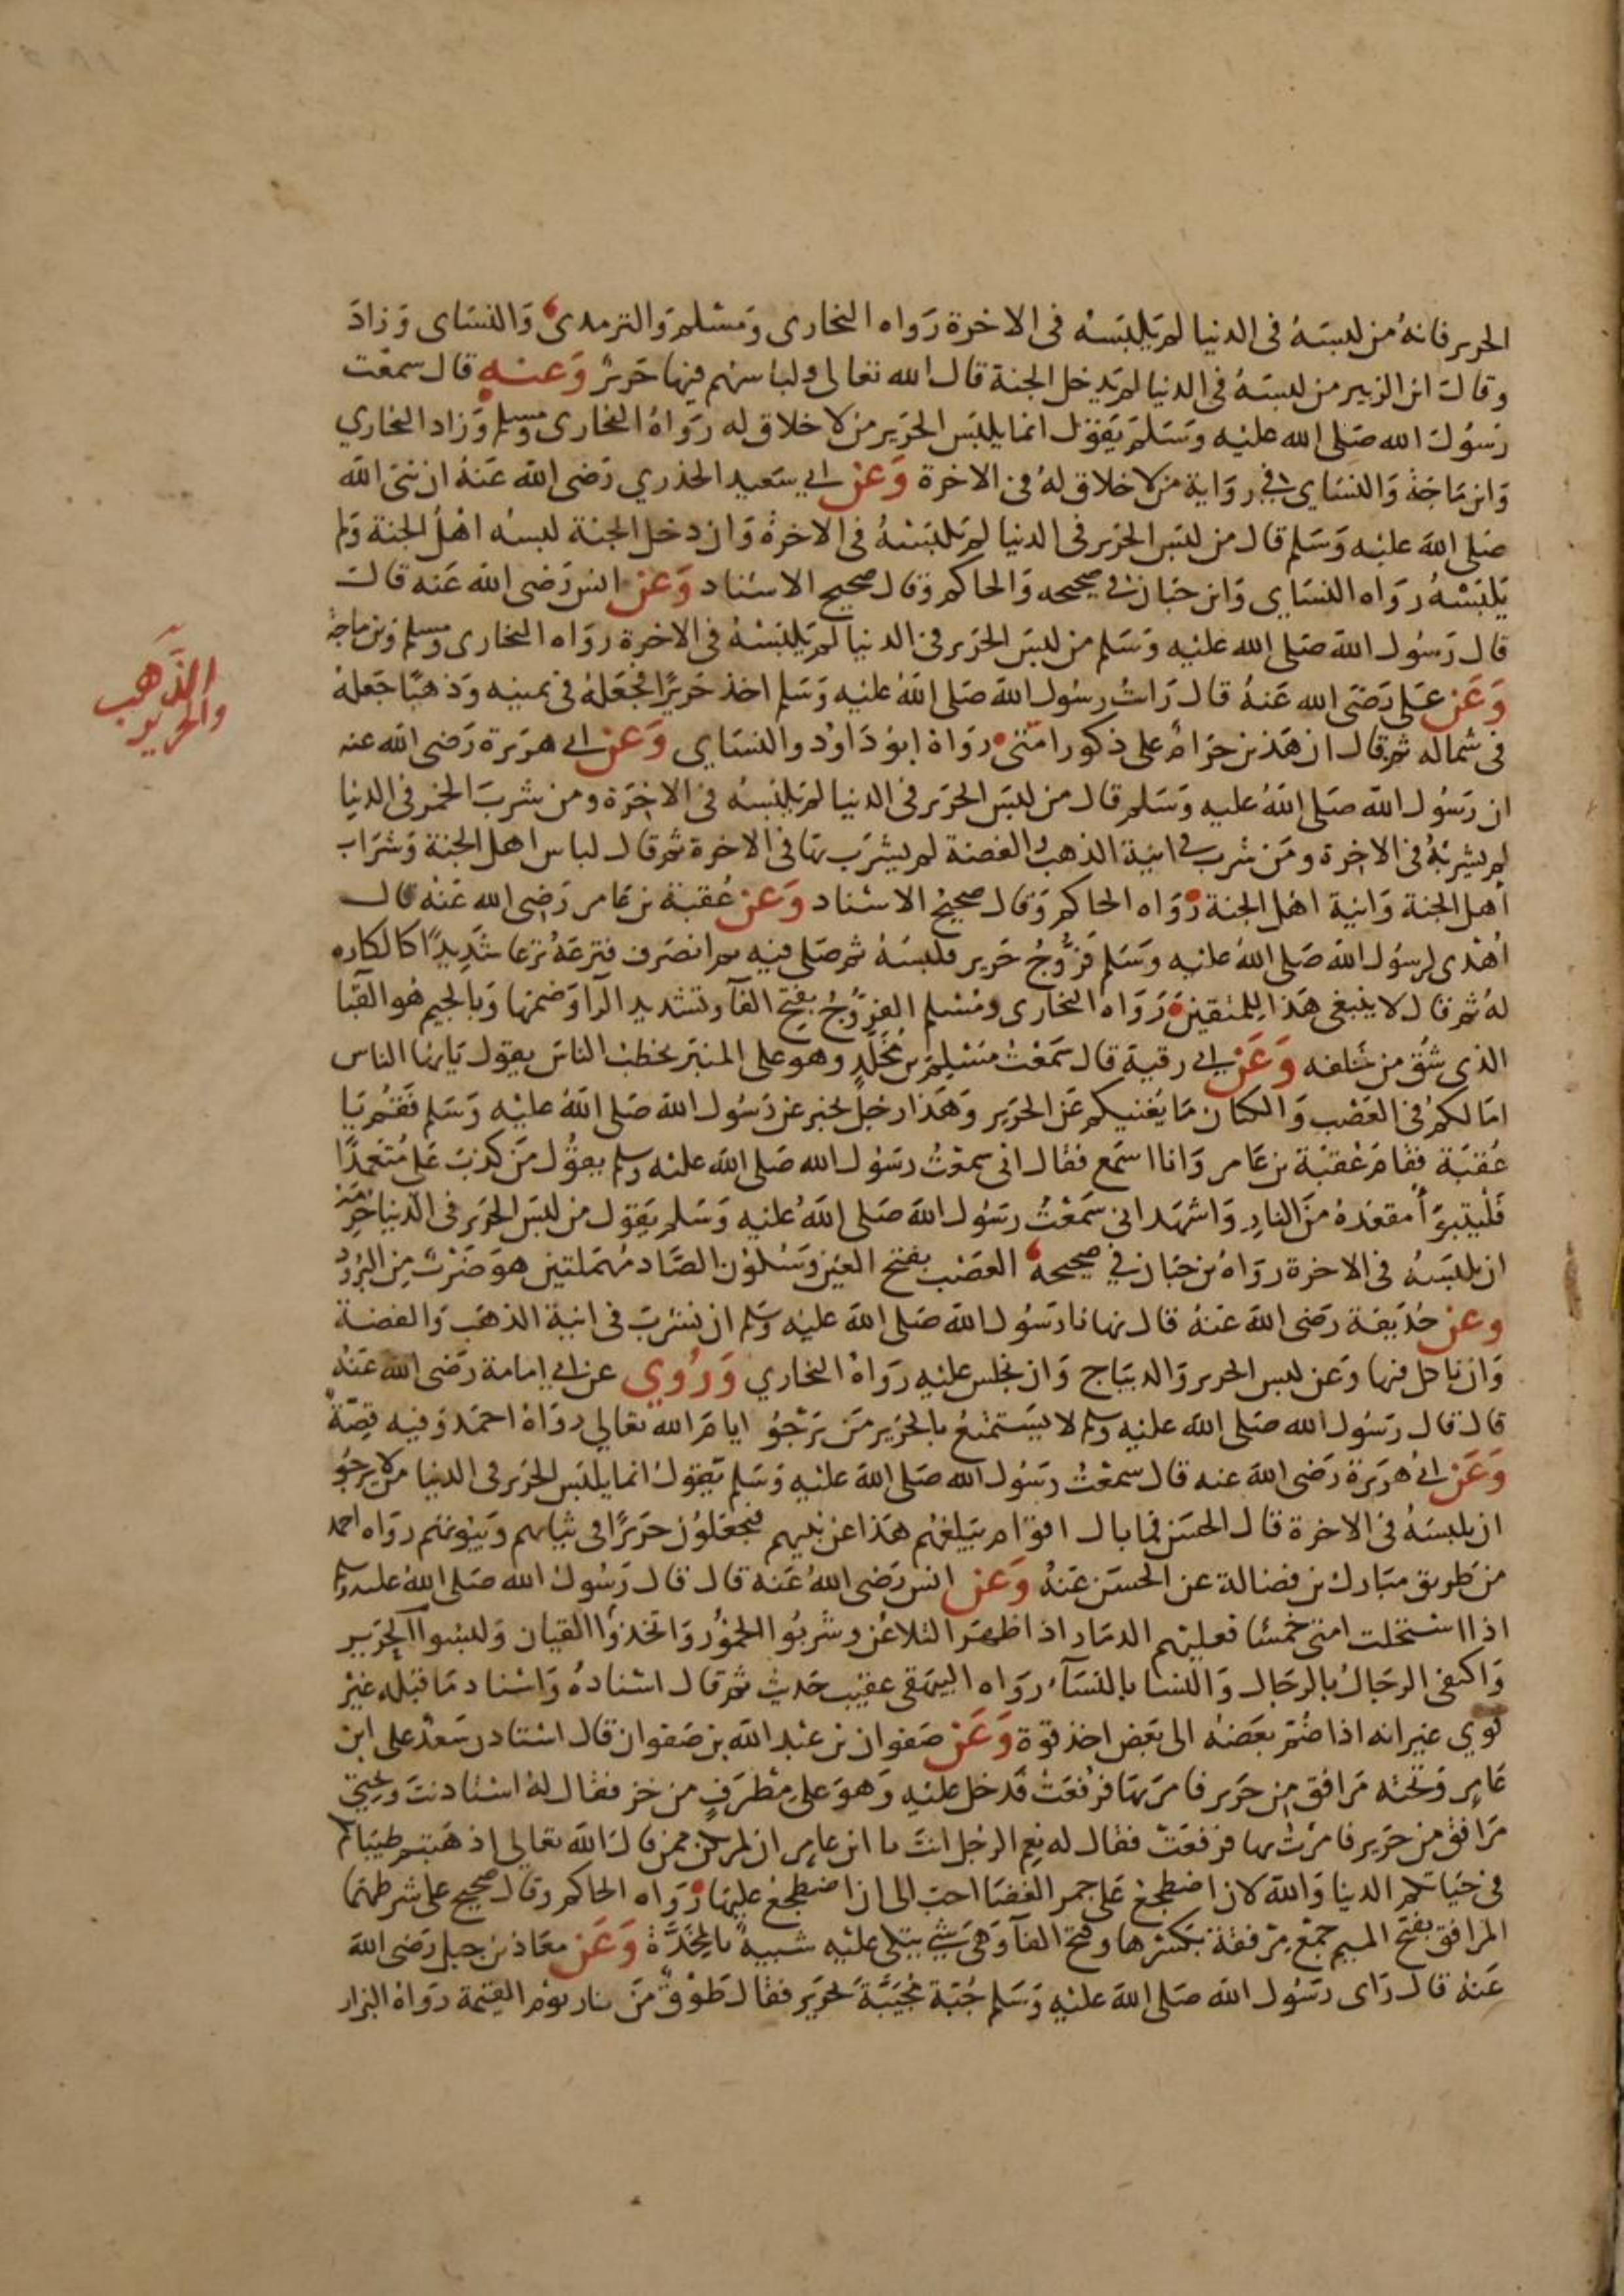 الحرير فانهُ من لبسَهُ فى الدنيا لم يَلبَسْه فى الاخرة رَواه البخارى وَمسْلم وَالترمدى وَالنسَاى وَزادَ
وقال ابن الزبير من لبسَهُ فى الدنيا لم يَدخل الجنة قال الله تعالى ولباسهم فيها حَريرٌ وَعنه قال سمعْت
رَسُول الله صَلى الله عليْه وَسَلمَ يَقوْل انما يلبَس الحَرير من لا خلاق له رَوَاهُ البخارى ومسلم وَزاد البخاري
وَابن مَاجَة وَالنسَاى فى روَاية من لا خلاق لهُ فى الاخرة وَعن ابي سَعيد الخذري رَضى الله عَنهُ ان نبىَ الله
صَلى الله عليْه وَسَلم قال من لبَس الحَرير فى الدنيا لم يَلبَسْهُ فى الاخرةِ وَان دخل الجنة لبسْه اهْلُ الجنة وَلم
يَلبَسْهُ رَواه النسَاى وَابن حبَان فى صحيحه وَالحاكم وَقال صحيح الاسْناد وَعن انس رَضى الله عَنه قال
قال رَسُول الله صَلى الله عليْه وَسَلم من لبَس الحَرير فى الدنيا لم يَلبَسْهُ فى الاخرة روَاه البخارى ومسلم وَابن ماجة
وَعَن عَلى رَضىَ الله عَنهُ قال رَايتُ رسُول الله صَلى اللهُ عليْه وَسَلم اخذ حَريرًا فجَعَلهُ فى يمينه وَذهبًا جَعلهُ
فى شماله ثم قال ان هَذين حَرَامٌ على ذكور امَتى رَوَاهُ ابوُ دَاوُد والنسَاى وَعن ابى هرَيرة رَضى الله عنه
ان رَسُول الله صَلى اللهُ عليه وَسَلم قال من لبَس الحَرير فى الدنيا لم يَلبَسْهُ فى الاخرَة ومن شربَ الخمْر فى الدنيا
لم يشربْهُ فى الاخِرة ومَن شرب فى انيَة الذهب والفضة لم يشرَب بهَا فى الاخرة ثم قال لباس اهل الجنة وَشرَاب
أهل الجنة وَانية اهْل الجنة رَوَاه الحاكم وَقال صحيحُ الاسْناد وَعن عُقبَة بن عَامر رَضى الله عَنْه قال
اُهْدى لرسُول الله صَلى اللهُ عليْه وَسَلم فَرُّوجُ حَرير فلبسَهُ ثم صَلى فيه ثم انصَرف فنزعَهُ نزعا شدِيدًا كالكاره
لهُ ثم قال لا ينبغى هَذا للمُتقينَ رَوَاه البخارى ومسْلم الفرُّوجُ بفتْحِ الفآ وتشديد الرآ وَضمها وَبالجيم هُو القبَا
الذى شُق من خَلفه وَعَنْ ابى رقية قال سَمَعْتُ مَسْلمَة بن مُخلدٍ وهو على المنبَر يخطبْ الناسَ يقول يَايها الناس
امَا لكمْ فى العَصْب وَالكتان مَا يُغنيكم عَن الحَرير وَهَذا رجلٌ يخبر عن رَسُول الله صَلى اللهُ عليْه وَسَلم فقُمْ يَا
عُقبَة فقامَ عُقبَة بن عَامر وَانا اسَمع فقال انى سمعْتُ رسَول الله صَلى الله عليْه وسلم يقوُل مَن كذبَ عَلىَّ مُتعمدًا
فَليتبوَّأ مقعَدهُ منَ النارِ وَاشهَد انى سَمَعْتُ رسَوُل الله صَلى اللهُ عليْه وَسَلم يَقول من لبسَ الحَرير فى الدنيا حُرِمَ
ان يلبَسهُ فى الاخرة روَاهُ بن حبَان فى صحيحهُ العَصْب بفتح العين وَسُكُون الصَّاد مُهمَلتين هوَ ضَرْبٌ مِن البُرُدْ
وعن حُذيفة رَضى الله عَنهُ قال نهانا رَسُول الله صَلى الله عليْه وسَلم ان نشرَبَ فى انيَة الذهَب وَالفضة
وَان ناكل فيها وَعَن لبس الحرير وَالديبَاج وَان نجلس عليْهِ رَوَاهُ البخاري وَرُوي عن ابى امامة رَضى الله عَنْه
قال قال رسَُول الله صَلى الله عليْه وسلم لا يسَتمْتعُ بالحَرير مَن يَرْجُوُ ايامَ الله تعالى روَاهُ احمَد وَفيه قِصَّةٌ
وَعَن ابى هُرَيرَة رَضى الله عنه قال سمعْتُ رسَُول الله صَلى الله عليْه وَسَلم يَقول انما يلبَس الحَرير فى الدنيا من لا يرجُو
ان يلبسَهُ فى الاخرة قال الحسَن فما بال اقوَام يبَلغهُم هَذا عن نبيهم فيجعَلوُن حَريرًا فى ثيابهم وَبيُوتهم روَاه احمد
من طريق مبَارك بن فضالة عن الحسَن عَنهُ وَعَن انس رَضى اللهُ عَنه قال قال رَسُول الله صَلى اللهُ عليه وسلم
اذا اسْتحَلت امتى خمسًا فعليْهم الدمَار اذا ظهَر التلاعُن وشربُوا الخمُوْر وَاتخذوُا القيان وَلبسُوا الحَرير
وَاكتفى الرجَال بالرجَال وَالنسا بالنسَآء رَوَاه البيهقى عقيْب حَديث ثم قال اسْنادهُ وَاسْناد مَا قبْله غيْرْ
قوي غير انه اذا ضُمَّ بعَضهُ الى بعَض اخذ قوة وَعَن صَفوان بن عبْد الله بن صَفوان قال اسْتاذن سَعْدٌ على ابن
عَامِر وَتحته مَرافق مِن حَرير فامَر بهَا فرُفعَتْ فدخل عليْه وَهوَ على مِطْرَفٍ من خز فقال لهُ اسْتاذنتَ وَتحتى
مَرَافق من حَرير فامَرْتُ بها فرَفعَتْ فقال له نِعم الرجُل انتَ يا ابن عامِر ان لم تكن ممن قال الله تعالى اذهَبتم طيبَاتكم
فى حَيَاتكم الدينا وَالله لان اضطجعَ عَلى جمر الغضَا احبَ الى ان اضطجعَ عليْهَا رَوَاه الحاكم وَقال صحيح على شرطهما
المرافق بفتَحْ الميم جمْع مِرْفقة بكسْرها وفتح الفآ وَهىَ شئ يتكى عليْه شبيهٌ بالمخدَّة وَعَن معَاذ بن جبل رَضى الله
عَنهُ قال رَاى رسَُول الله صَلى الله عليْه وَسَلم جُبَة مُجَيَّبَة بحَرير فقال طَوْقٌ مِن نار يوْم القيَمة روَاهُ البزار
الذَّهَب
والحرير